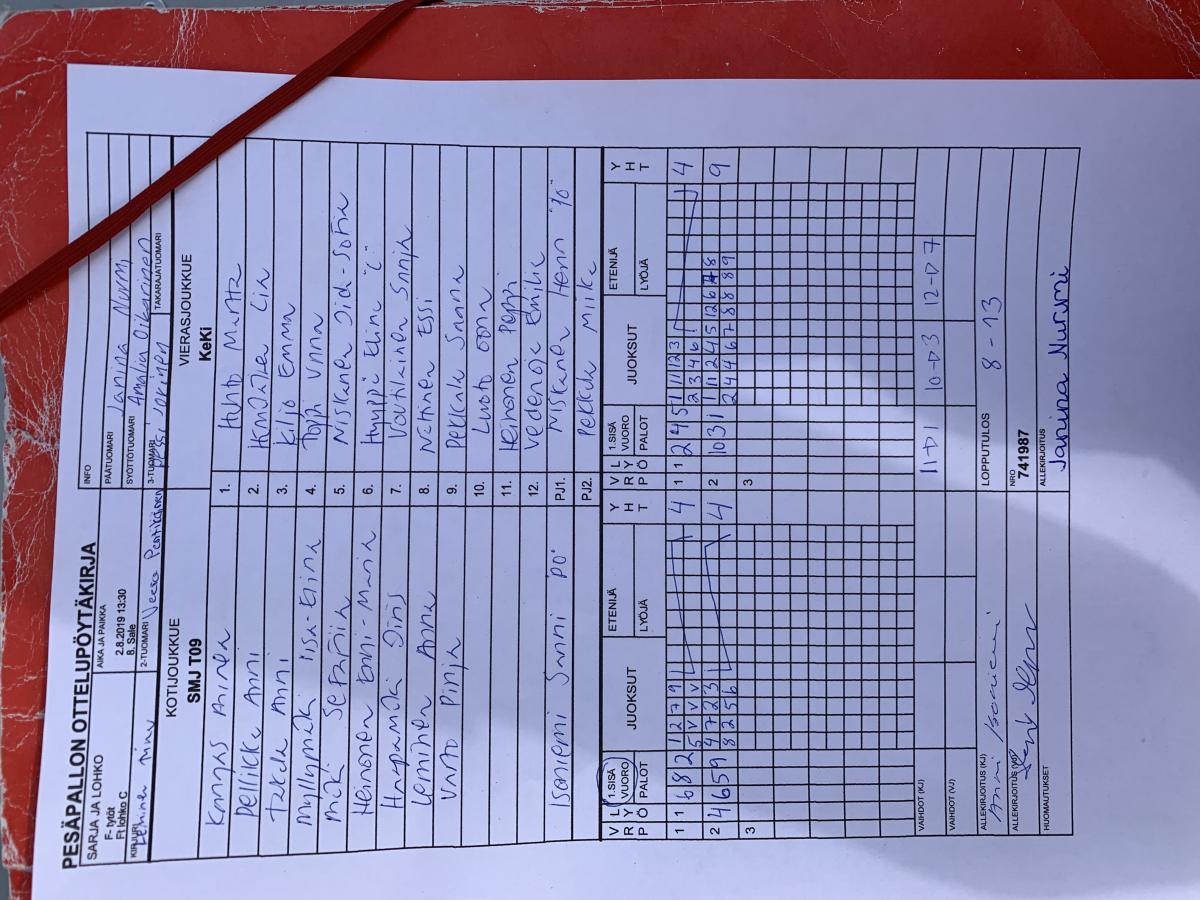 PESÄPALLON OTTELUPÖYTÄKIRJA
SARJA JA LOHKO
F- tytöt
Ft lohko C
AIKA JA PAIKKA
2.8.2019 13:30
8. Sale
INFO
PÄÄTUOMARI Janina Nurmi
SYÖTTÖTUOMARI Amalia Oikarinen
KIRJURI
2-TUOMARI Veera Pentikäinen
3-TUOMARI Jokinen
TAKARAJATUOMARI
KOTIJOUKKUE
SMJ T09
VIERASJOUKKUE
KeKi
Kangas Ainea 1. Huhto Martta
Pellikka Anni 2. Lia
Takala Anni 3. Kiljo Emma
Myllymäki Iisa-Eeina 4. Topi Unna
Mäki Serafiia 5. Niskanen Iid-Sofia
Heinonen Enni-Maria 6. Hyyppä Elina "C"
Haapamäki Iiris 7. Voutilainen Sanja
Leminen Anna 8. Nätinen Essi
Vaato Pinja 9. Pekkala Sanna
10. Luoto Oona
11. Heinonen Peppi
12. Vedenoja Emilia
Isoniemi Sanni "PO" PJ1. Niskanen Henn "10"
PJ2. Pekkala Miika
V L 1.SISÄ JUOKSUT ETENIJÄ Y V L 1.SISÄ JUOKSUT ETENIJÄ Y
R Y VUORO H R Y VUORO H
P Ö PALOT LYÖJÄ T P Ö PALOT LYÖJÄ T
1 1 6 8 2 1 2 7 9 4 1 1 2 4 5 1 1 1 2 3 4
5 V V V 2 3 4 6
2 4 6 5 9 4 7 2 3 4 2 10 3 1 1 1 2 4 5 12 6 7 8 9
8 2 5 6 2 4 4 6 7 8 8 8 9
3 3
VAIHDOT (KJ) 11-D1 10-D3 12-D7
VAIHDOT (VJ)
ALLEKIRJOITUS (KJ)
Anni Isoniemi
LOPPUTULOS
8 - 13
ALLEKIRJOITUS (VJ)
NRO
741987
HUOMAUTUKSET
ALLEKIRJOITUS
Janina Nurmi